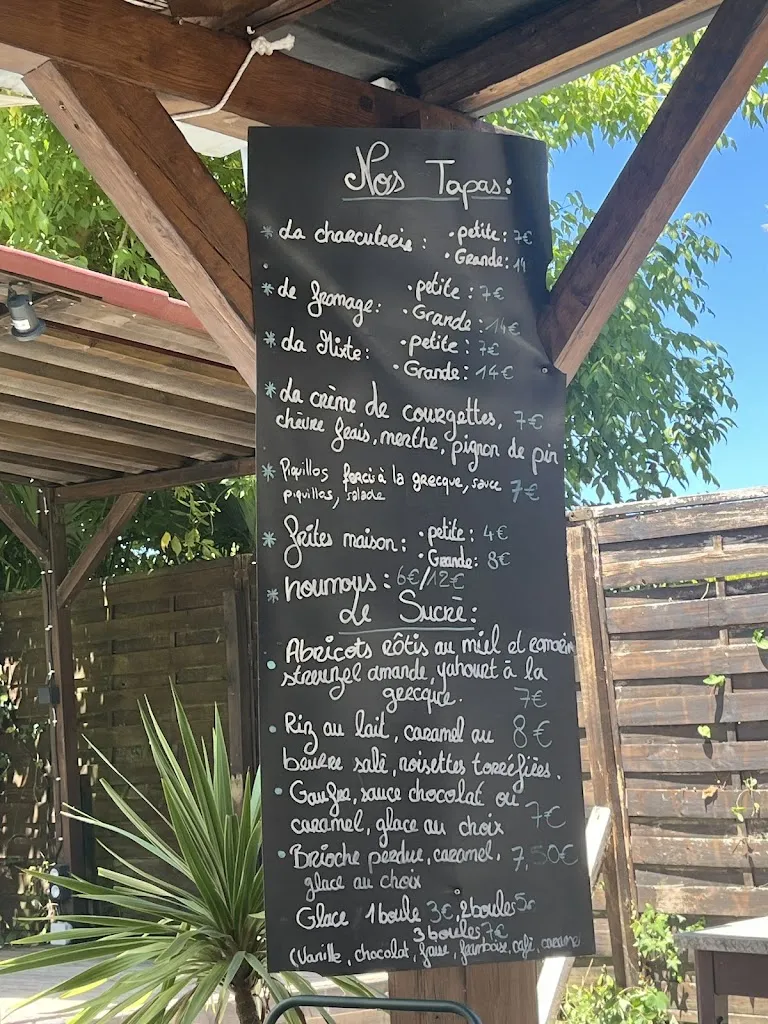 Nos Tapas:
* La charcuterie : • petite : 7€
• Grande : 14
* Le fromage : • petite : 7€
• Grande : 14€
* La Mixte : • petite : 7€
• Grande : 14€
* La crème de courgettes, 7€
chèvre frais, menthe, pignon de pin
* Piquillos farci à la grecque, sauce 7€
piquillos, salade
* frites maison : • petite : 4€
• Grande : 8€
* houmous : 6€/12€
Le Sucré :
• Abricots rôtis au miel et romarin
streuzel amande, yahourt à la
grecque. 7€
• Riz au lait, caramel au 8€
beurre salé, noisettes torréfiées.
• Gaufre, sauce chocolat ou 7€
caramel, glace au choix
• Brioche perdue, caramel, 7,50€
glace au choix
Glace 1 boule 3€, 2 boules 5€
3 boules 7€
(Vanille, chocolat, framboise, café, caramel